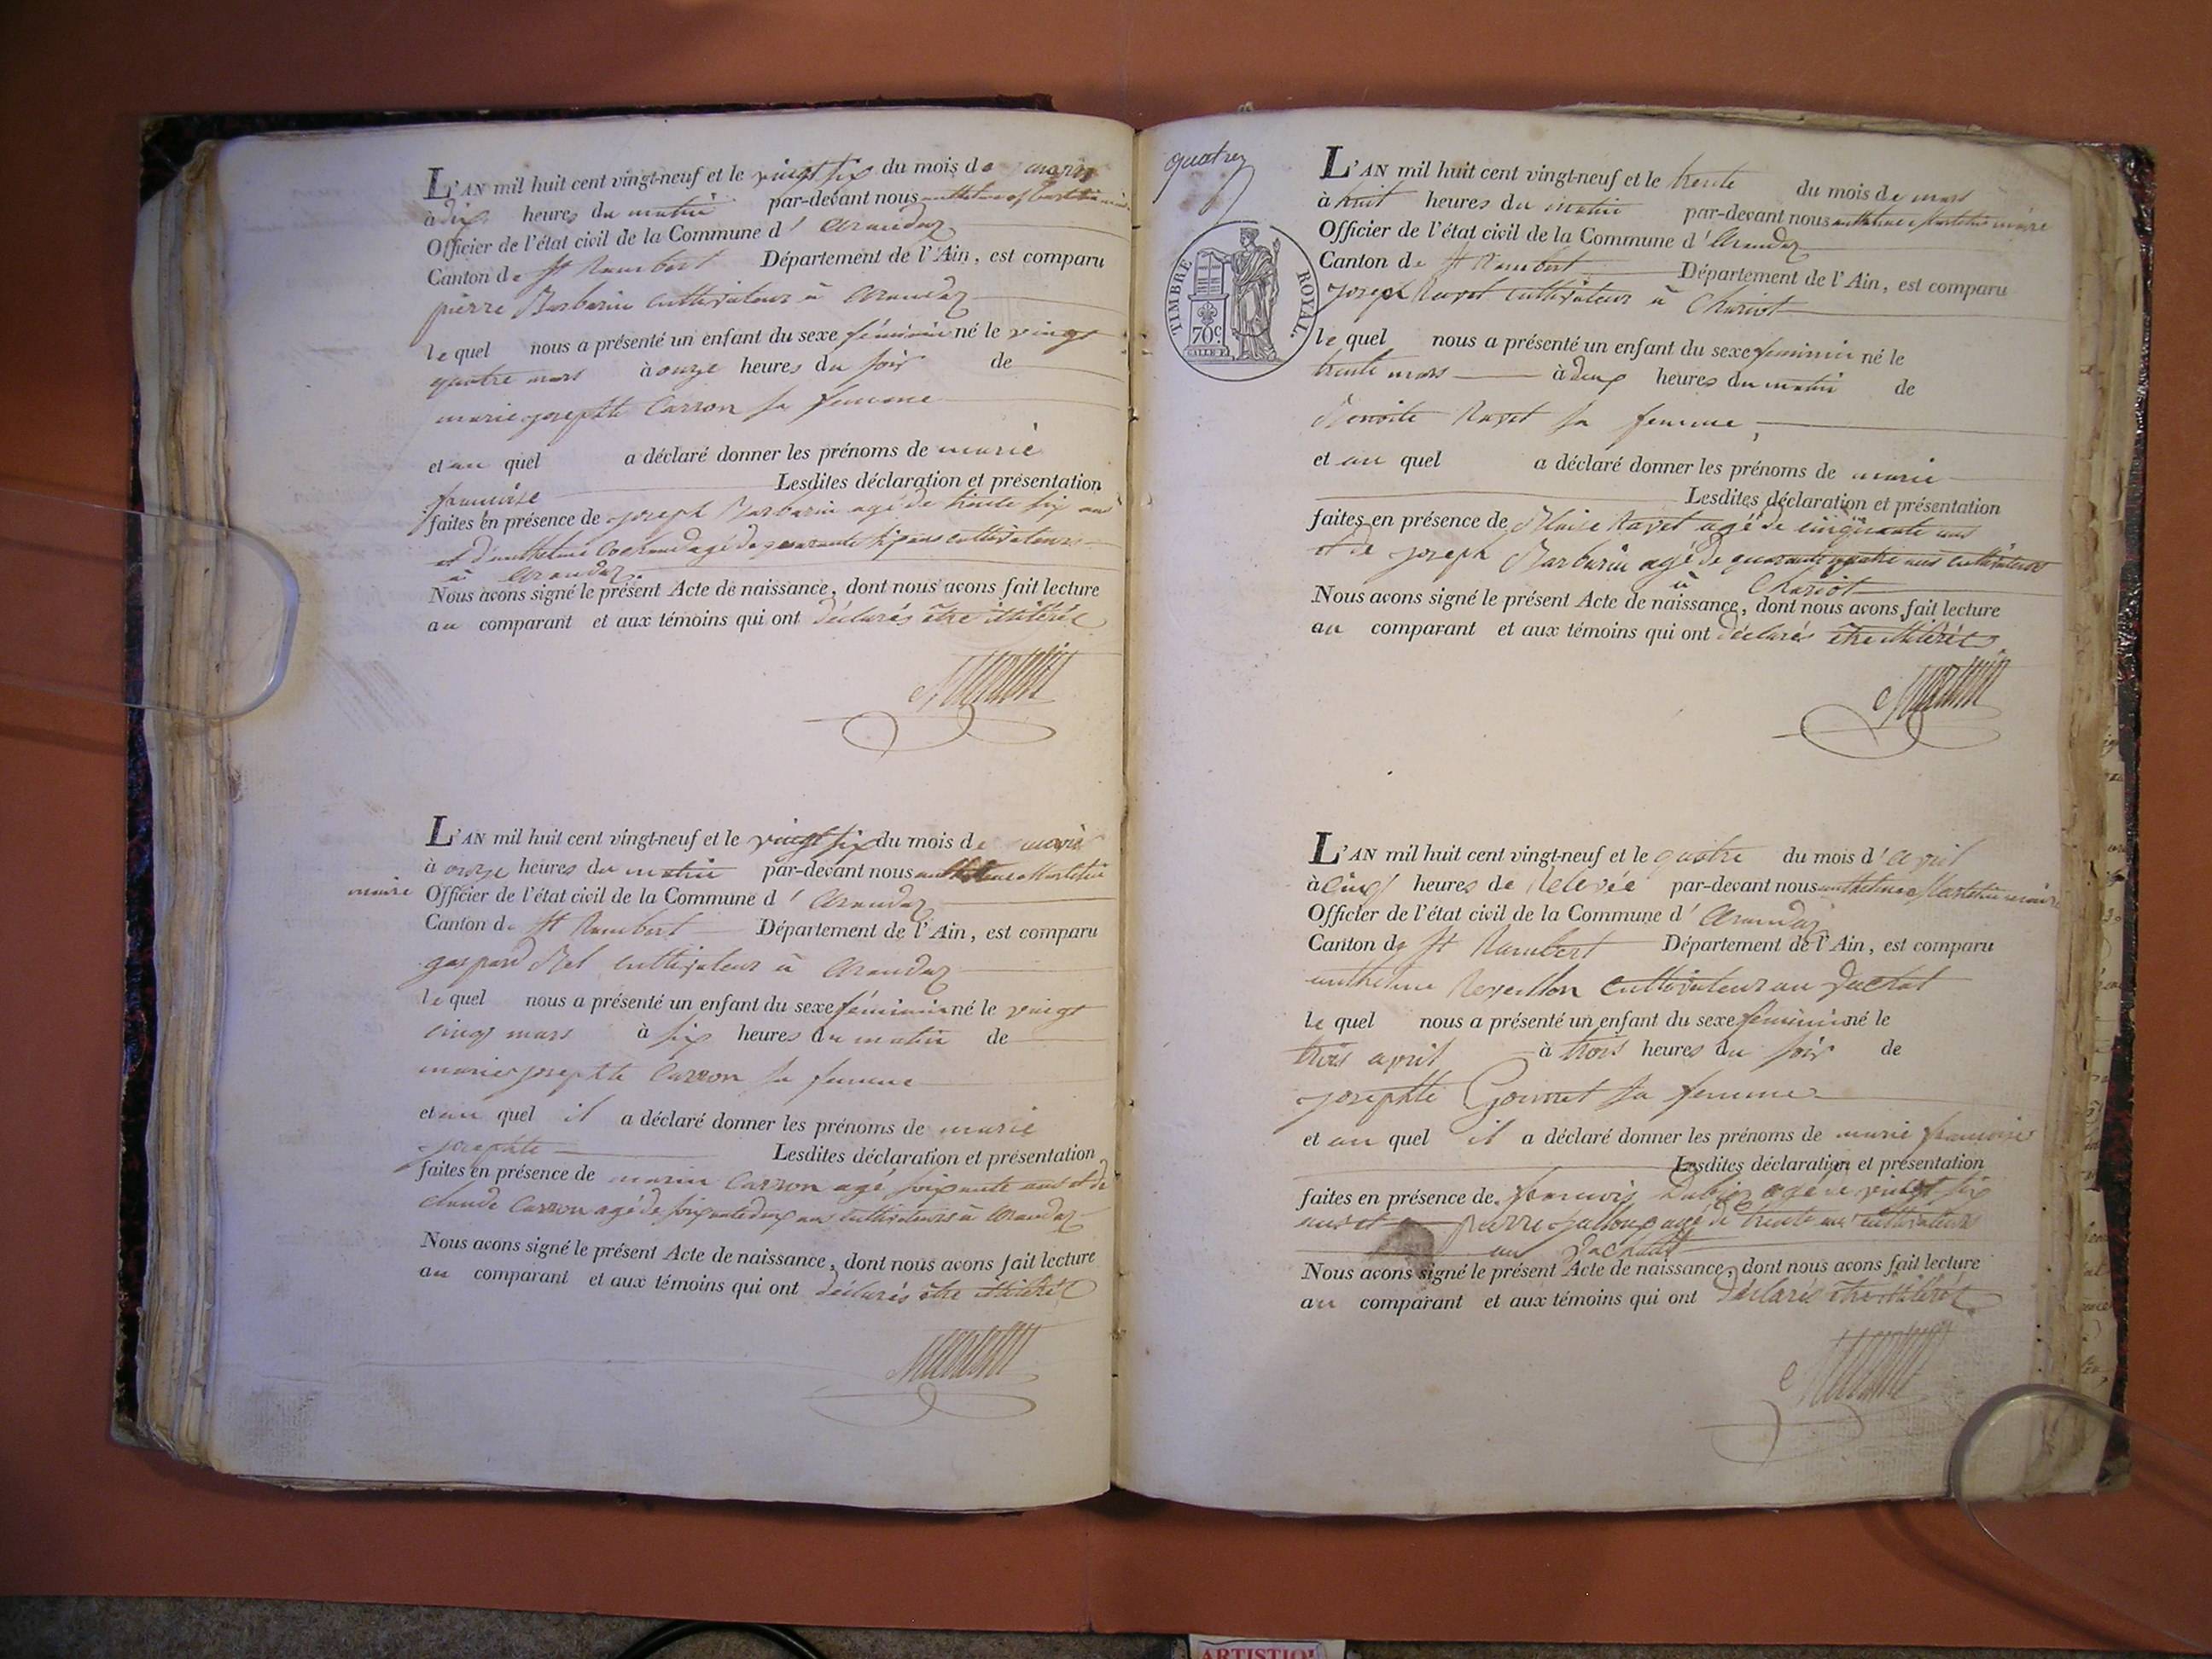 L'AN mil huit cent vingt-neuf et le vingt six du mois de mars
à dix heures du matin par-devant nous anthelme Martetin maire
Officier de l'état civil de la Commune d' arandaz
Canton de St Rambert Département de l'Ain, est comparu
pierre Barbarin cultivateur à arandaz
le quel nous a présenté un enfant du sexe féminin né le vingt
quatre mars à onze heures du soir de
marie josephte Carron sa femme
et au quel a déclaré donner les prénoms de marie
francoise Lesdites déclaration et présentation
faites en présence de joseph Barbarin agé de trente six ans
et d'anthelme Cochand agé de quarante six ans cultivateurs
à arandaz
Nous avons signé le présent Acte de naissance, dont nous avons fait lecture
au comparant et aux témoins qui ont déclarés être illitérés
L'AN mil huit cent vingt-neuf et le vingt six du mois de mars
à onze heures du matin par-devant nous anthelme Martetin
maire Officier de l'état civil de la Commune d' arandaz
Canton de St Rambert Département de l'Ain, est comparu
gaspard Bel cultivateur à arandaz
le quel nous a présenté un enfant du sexe féminin né le vingt
cinq mars à six heures du matin de
marie josephte Carron sa femme
et au quel il a déclaré donner les prénoms de marie
josephte Lesdites déclaration et présentation
faites en présence de marin Carron agé soixante ans et de
claude Carron agé de soixante dix ans cultivateurs à arandaz
Nous avons signé le présent Acte de naissance, dont nous avons fait lecture
au comparant et aux témoins qui ont déclarés être illitérés
quatre
TIMBRE ROYAL
70c
L'AN mil huit cent vingt-neuf et le trente du mois de mars
à huit heures du matin par-devant nous anthelme Martetin maire
Officier de l'état civil de la Commune d' arandaz
Canton de St Rambert Département de l'Ain, est comparu
joseph Ravet cultivateur à Chariot
le quel nous a présenté un enfant du sexe feminin né le
trente mars à deux heures du matin de
Benoite Ravet sa femme
et au quel a déclaré donner les prénoms de marie
Lesdites déclaration et présentation
faites en présence de Blaise Ravet agé de cinquante ans
et de joseph Barbarin agé de quarante quatre ans cultivateurs
à Chariot
Nous avons signé le présent Acte de naissance, dont nous avons fait lecture
au comparant et aux témoins qui ont déclarés être illitérés
L'AN mil huit cent vingt-neuf et le quatre du mois d' avril
à cinq heures de Relevée par-devant nous anthelme Martetin maire
Officier de l'état civil de la Commune d' arandaz
Canton de St Rambert Département de l'Ain, est comparu
anthelme Reveillon cultivateur au
le quel nous a présenté un enfant du sexe feminin né le
trois avril à trois heures du soir de
josephte sa femme
et au quel il a déclaré donner les prénoms de marie francoise
Lesdites déclaration et présentation
faites en présence de francois agé de vingt six
ans et pierre agé de trente ans cultivateurs
au
Nous avons signé le présent Acte de naissance, dont nous avons fait lecture
au comparant et aux témoins qui ont déclarés être illitérés